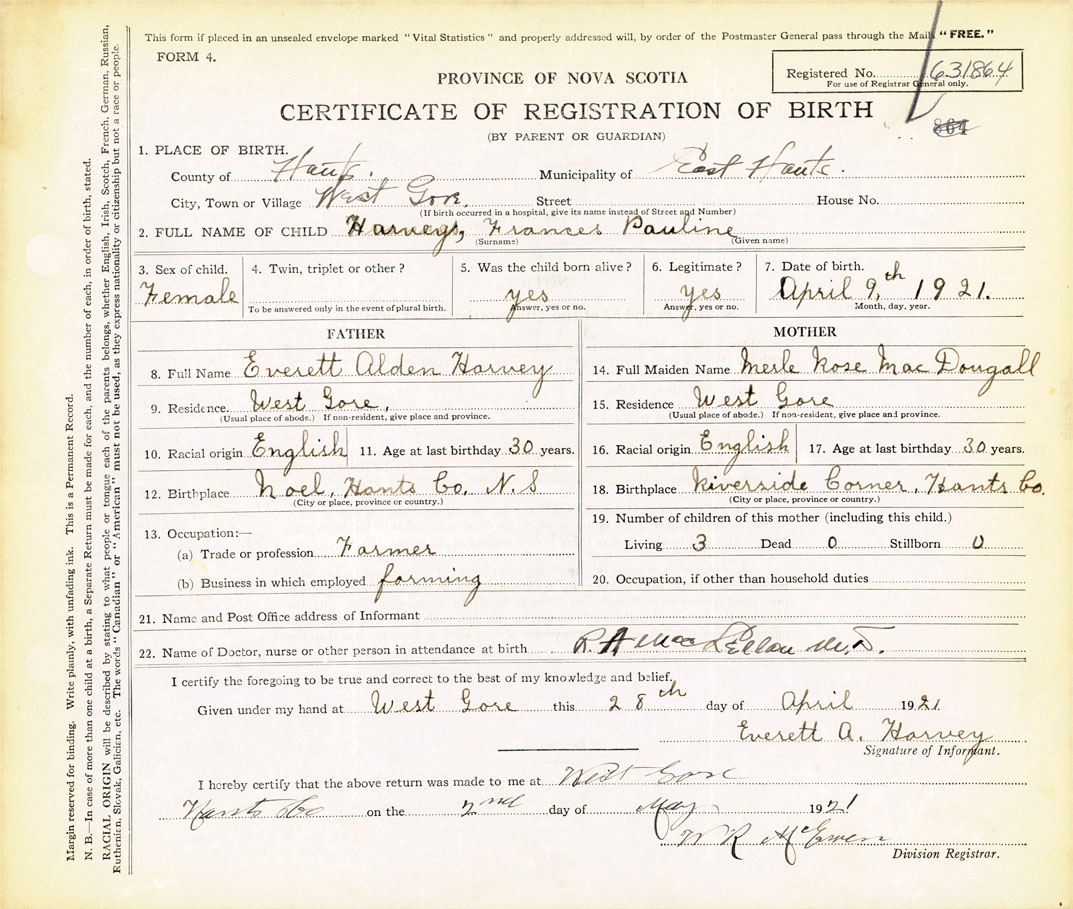 This form if placed in an unsealed envelope marked "Vital Statistics" and properly addressed will, by order of the Postmaster General pass through the Mail "FREE."
FORM 4.
Registered No. 631864
For use of Registrar General only.
PROVINCE OF NOVA SCOTIA
CERTIFICATE OF REGISTRATION OF BIRTH
864
(BY PARENT OR GUARDIAN)
1. PLACE OF BIRTH.
County of Hants. Municipality of East Hants.
City, Town or Village West Gore. Street House No.
(If birth occurred in a hospital, give its name instead of Street and Number)
2. FULL NAME OF CHILD Harvey, Frances Pauline
(Surname) (Given name)
3. Sex of child. 4. Twin, triplet or other? 5. Was the child born alive? 6. Legitimate? 7. Date of birth.
Female yes yes April 9th 1921.
To be answered only in the event of plural birth. Answer, yes or no. Answer, yes or no. Month, day, year.
FATHER
8. Full Name Everett Alden Harvey
9. Residence. West Gore,
(Usual place of abode.) If non-resident, give place and province.
10. Racial origin English 11. Age at last birthday 30 years.
12. Birthplace Noel, Hants Co, N.S
(City or place, province or country.)
13. Occupation:—
(a) Trade or profession Farmer
(b) Business in which employed farming
MOTHER
14. Full Maiden Name Merle Rose Mac Dougall
15. Residence West Gore
(Usual place of abode.) If non-resident, give place and province.
16. Racial origin English 17. Age at last birthday 30 years.
18. Birthplace Riverside Corner, Hants Co.
(City or place, province or country.)
19. Number of children of this mother (including this child.)
Living 3 Dead 0 Stillborn 0
20. Occupation, if other than household duties
21. Name and Post Office address of Informant
22. Name of Doctor, nurse or other person in attendance at birth R. A. MacLellan M.D.
I certify the foregoing to be true and correct to the best of my knowledge and belief.
Given under my hand at West Gore this 28th day of April 1921
Everett A. Harvey
Signature of Informant.
I hereby certify that the above return was made to me at West Gore
Hants Co on the 2nd day of May 1921
W R McEwen
Division Registrar.
Margin reserved for binding. Write plainly, with unfading ink. This is a Permanent Record.
N. B.—In case of more than one child at a birth, a Separate Return must be made for each, and the number of each, in order of birth, stated.
RACIAL ORIGIN will be described by stating to what people or tongue each of the parents belongs, whether English, Irish, Scotch, French, German, Russian,
Ruthenian, Slovak, Galician, etc. The words "Canadian" or "American" must not be used, as they express nationality or citizenship but not a race or people.